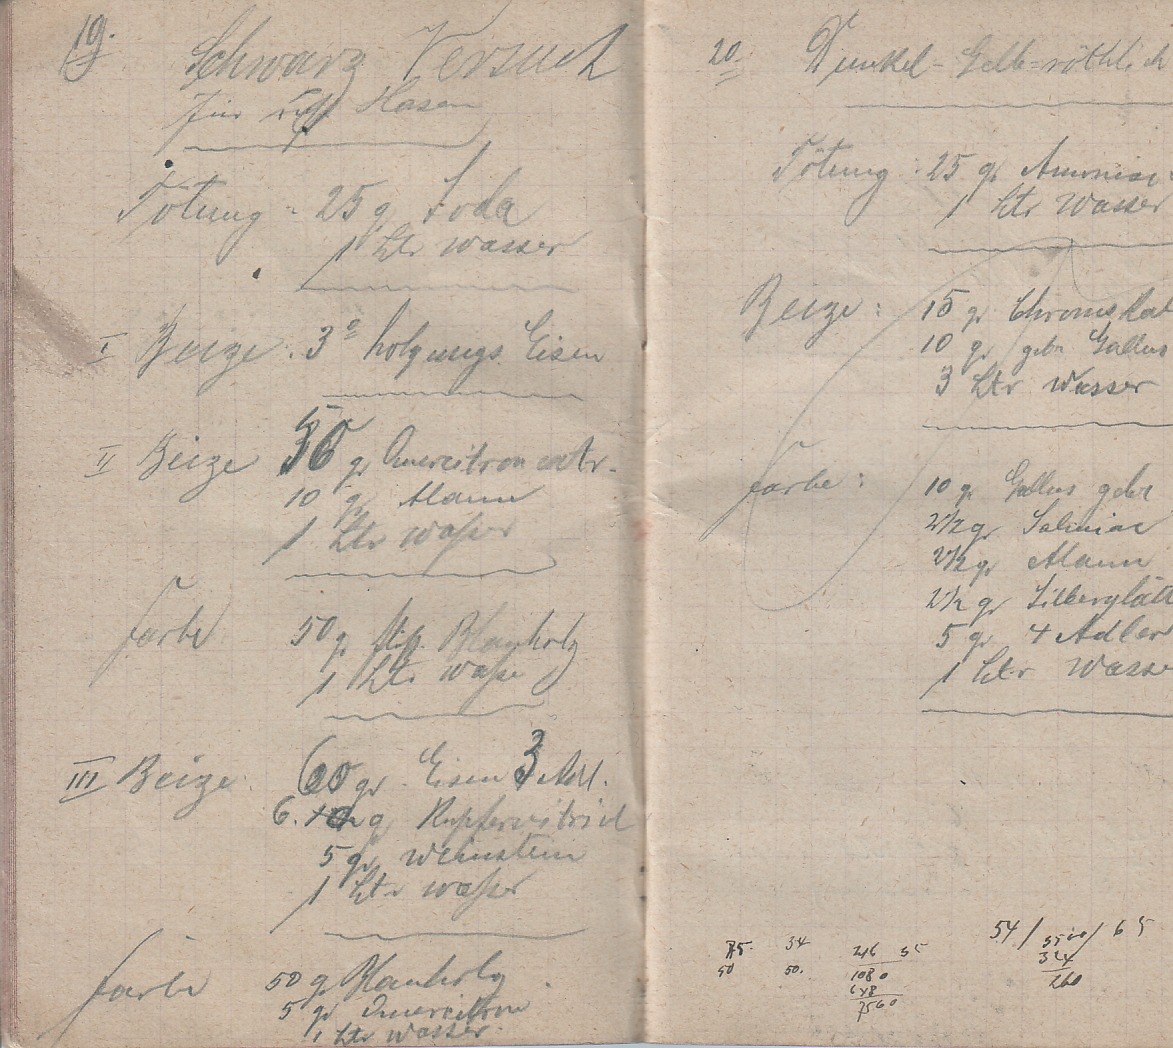 19.
Schwarz Versuch
für Hasen
Tötung - 25 g Soda
1 Ltr Wasser
I Beize. 3° holzungs. Eisen
II Beize 50 gr Quercitron extr.
10 gr Alaun
1 Ltr Waßer
Farbe 50 g Blauholz
1 Ltr Waßer
III Beize. 60 gr. Eisen 3 Adl.
6. g Kupfervitriol
5 gr Weinstein
1 Ltr Waßer
Farbe 50 g Blauholz
5 gr Quercitron
1 Ltr Wasser.
20. Dunkel-Gelb-röthlich
Tötung 25 gr Amoniac
1 Ltr Wasser
Beize: 15 gr Chromskal
10 gr gebr Gallus
3 Ltr Wasser
Farbe: 10 gr Gallus gebr
2 1/2 gr Salmiac
2 1/2 gr Alaun
2 1/2 gr Silberglätt
5 gr 4 Adler
1 Ltr Wasse
75. 34 216 35 54 / 3500 / 65
50 50. 1080 324
648 260
7560